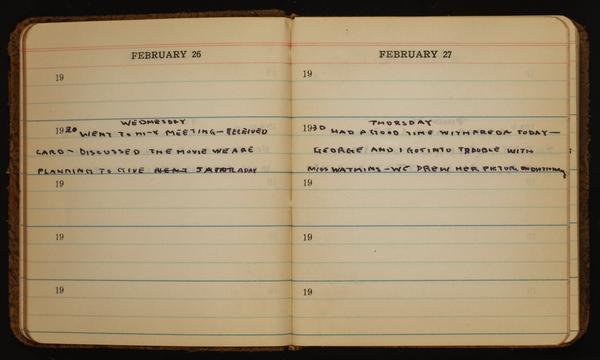 FEBRUARY 26
19
WEDNESDAY
1930 WENT TO HI-Y MEETING - RECEIVED
CARD - DISCUSSED THE MOVIE WE ARE
PLANNING TO GIVE NEXT SATURDAY
19
19
19
FEBRUARY 27
19
THURSDAY
1930 HAD A GOOD TIME WITH FREDA TODAY -
GEORGE AND I GOT INTO TROUBLE WITH
MISS WATKINS - WE DREW HER PICTURE
19
19
19